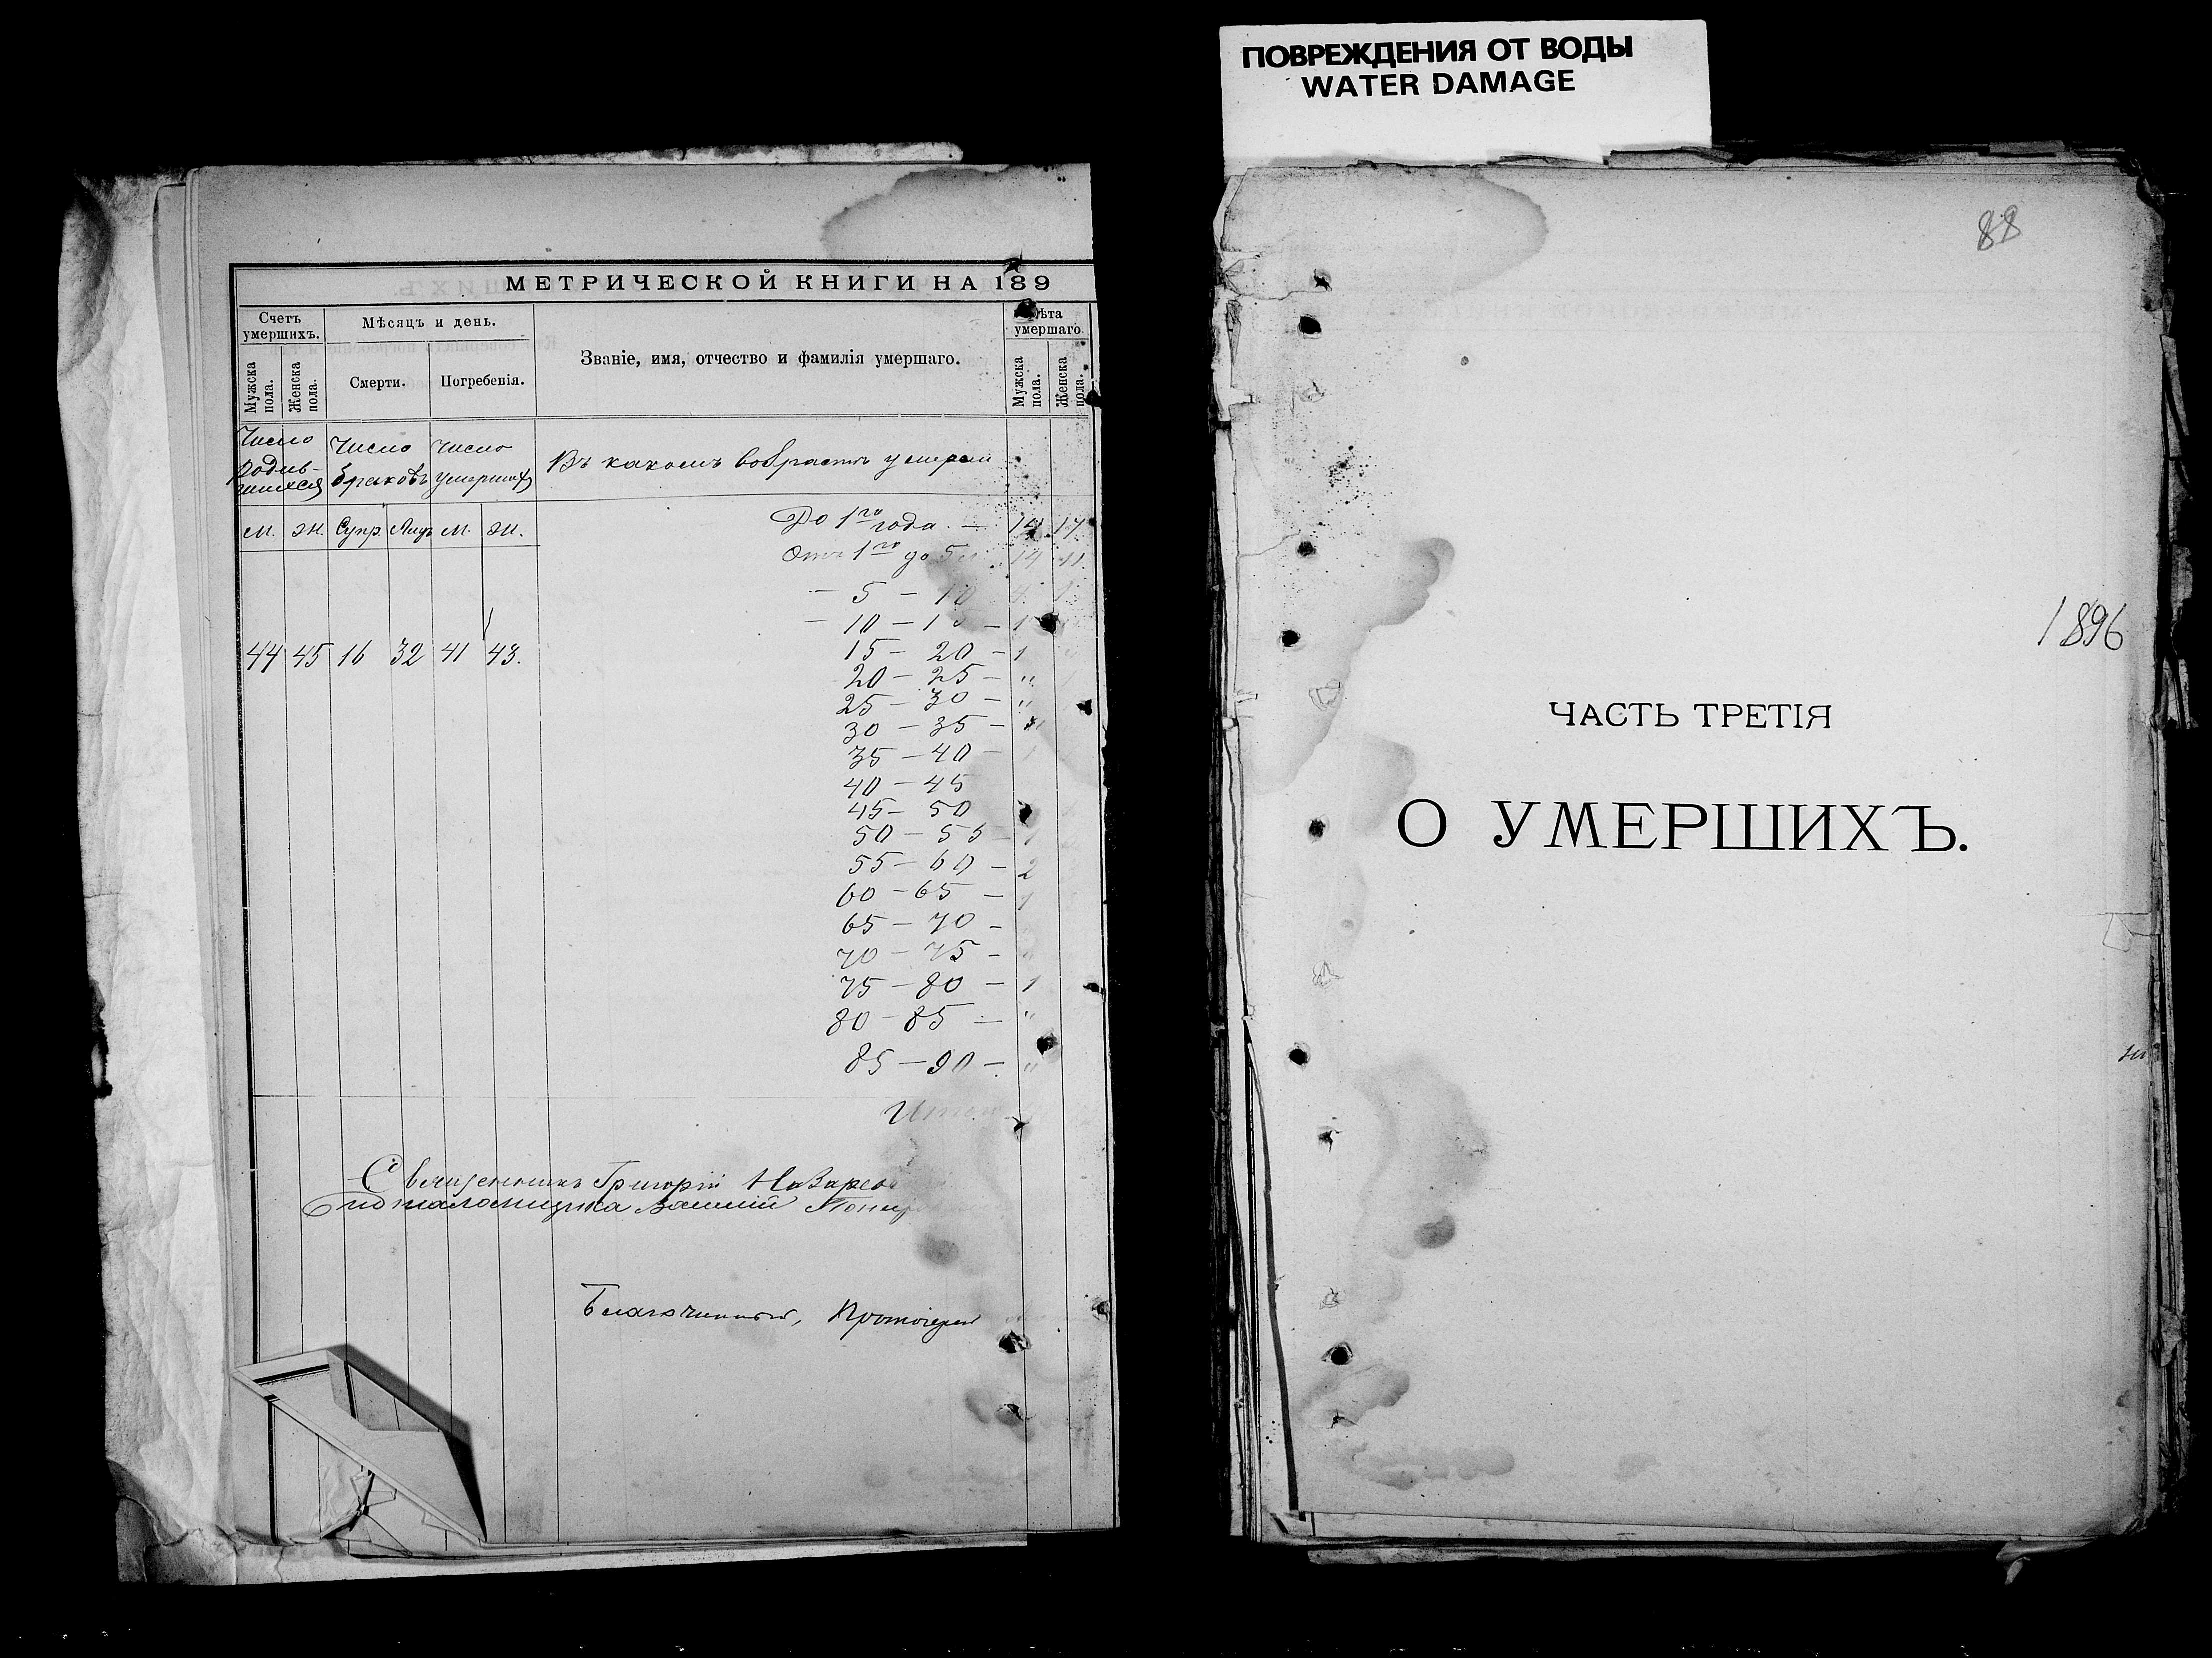 ПОВРЕЖДЕНИЯ ОТ ВОДЫ
WATER DAMAGE
МЕТРИЧЕСКОЙ КНИГИ НА 189
Счетъ умершихъ.
Мѣсяцъ и день.
Званіе, имя, отчество и фамилія умершаго.
Лѣта умершаго.
Мужска пола.
Женска пола.
Смерти.
Погребенія.
Мужска пола.
Женска пола.
Число родившихся
Число браковъ
Число умершихъ
Въ какомъ возрастѣ умерли
м. ж. Супр. Лицъ м. ж.
До 1го года — 14 17
Отъ 1го до 5 14 11
— 5 — 10
— 10 — 15 — 1
44 45 16 32 41 43.
15 — 20 — 1
20 — 25 — "
25 — 30 — "
30 — 35 —
35 — 40 —
40 — 45
45 — 50
50 — 55 —
55 — 60 — 2
60 — 65 — 1
65 — 70 —
70 — 75 —
75 — 80 — 1
80 — 85 — "
85 — 90 — "
Священникъ Григорій
Благочинный, Протоіерей
88
1896
ЧАСТЬ ТРЕТІЯ
О УМЕРШИХЪ.